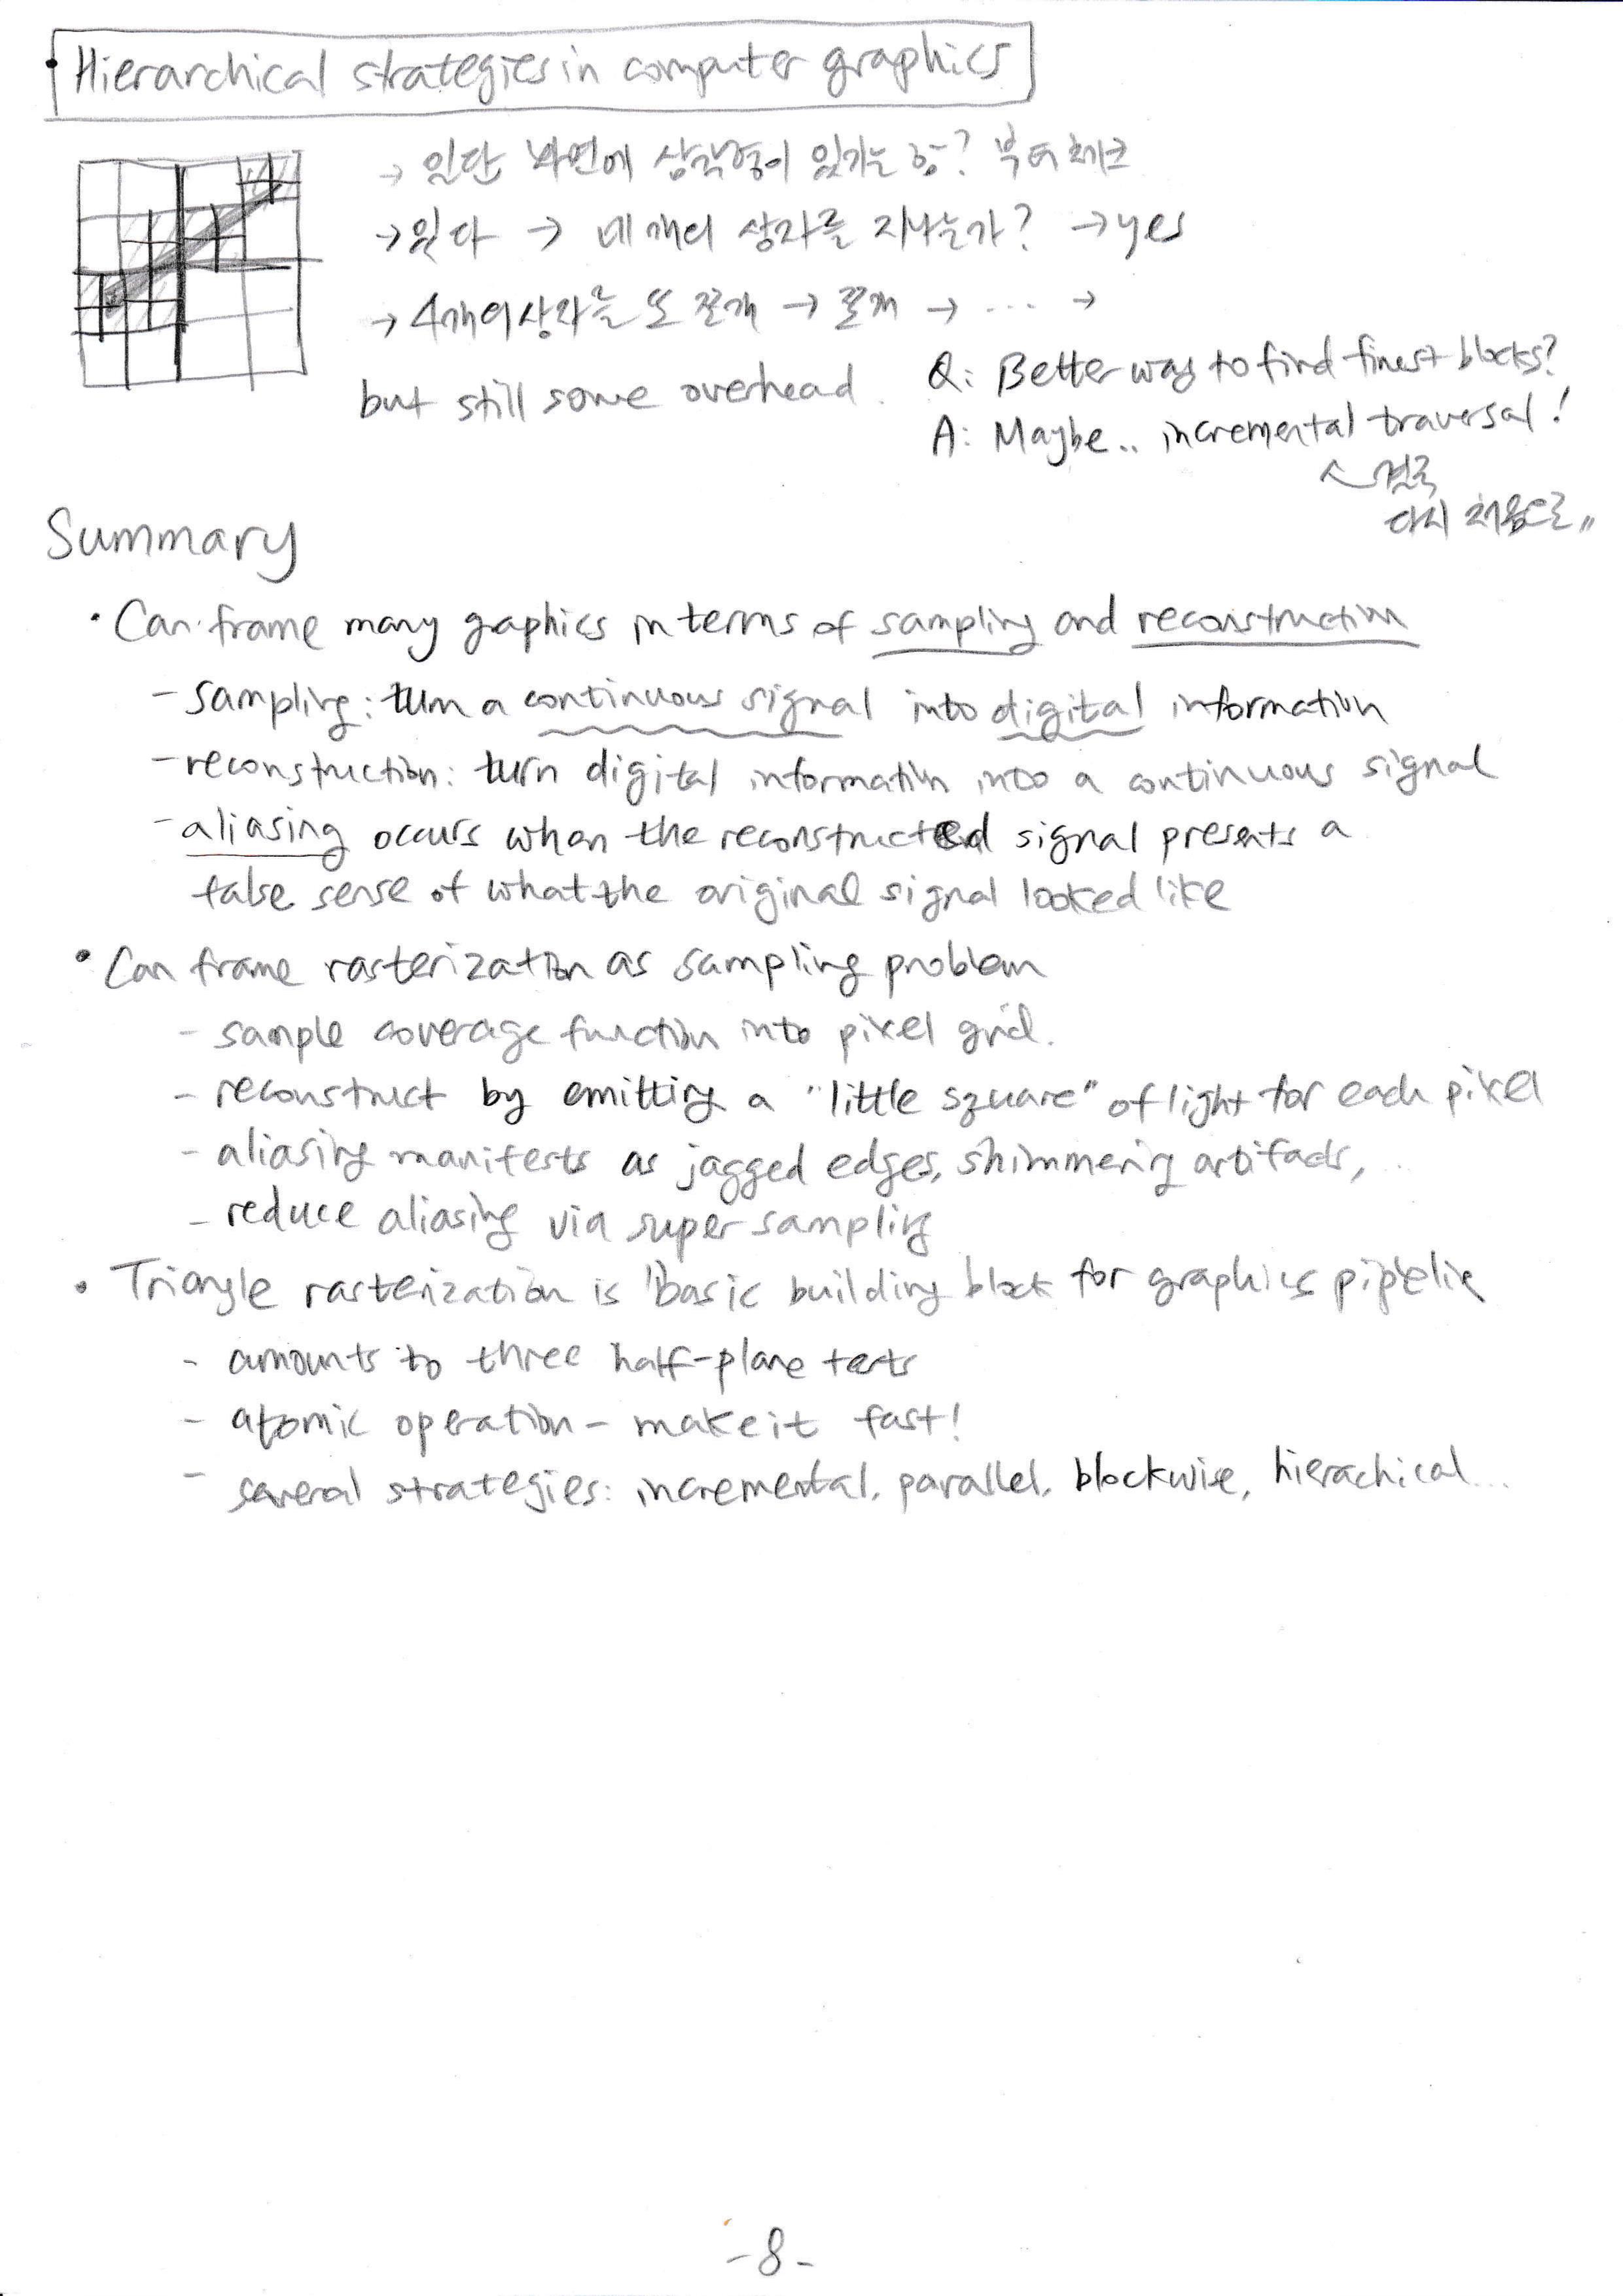 • Hierarchical strategies in computer graphics
→ 일단 화면에 삼각형이 있기는 함? 부터 체크
→ 있다 → 네 개의 상자를 지나는가? → yes
→ 4개의 상자를 또 쪼개 → 쪼개 → ... →
but still some overhead.
Q: Better way to find finest blocks?
A: Maybe.. incremental traversal!
결국
다시 처음으로
Summary
• Can frame many graphics in terms of sampling and reconstruction
- sampling: turn a continuous signal into digital information
- reconstruction: turn digital information into a continuous signal
- aliasing occurs when the reconstructed signal presents a
false sense of what the original signal looked like
• Can frame rasterization as sampling problem
- sample coverage function into pixel grid.
- reconstruct by emitting a "little square" of light for each pixel
- aliasing manifests as jagged edges, shimmering artifacts, ..
- reduce aliasing via super sampling
• Triangle rasterization is basic building block for graphics pipeline
- amounts to three half-plane tests
- atomic operation - make it fast!
- several strategies: incremental, parallel, blockwise, hierachical...
-8-